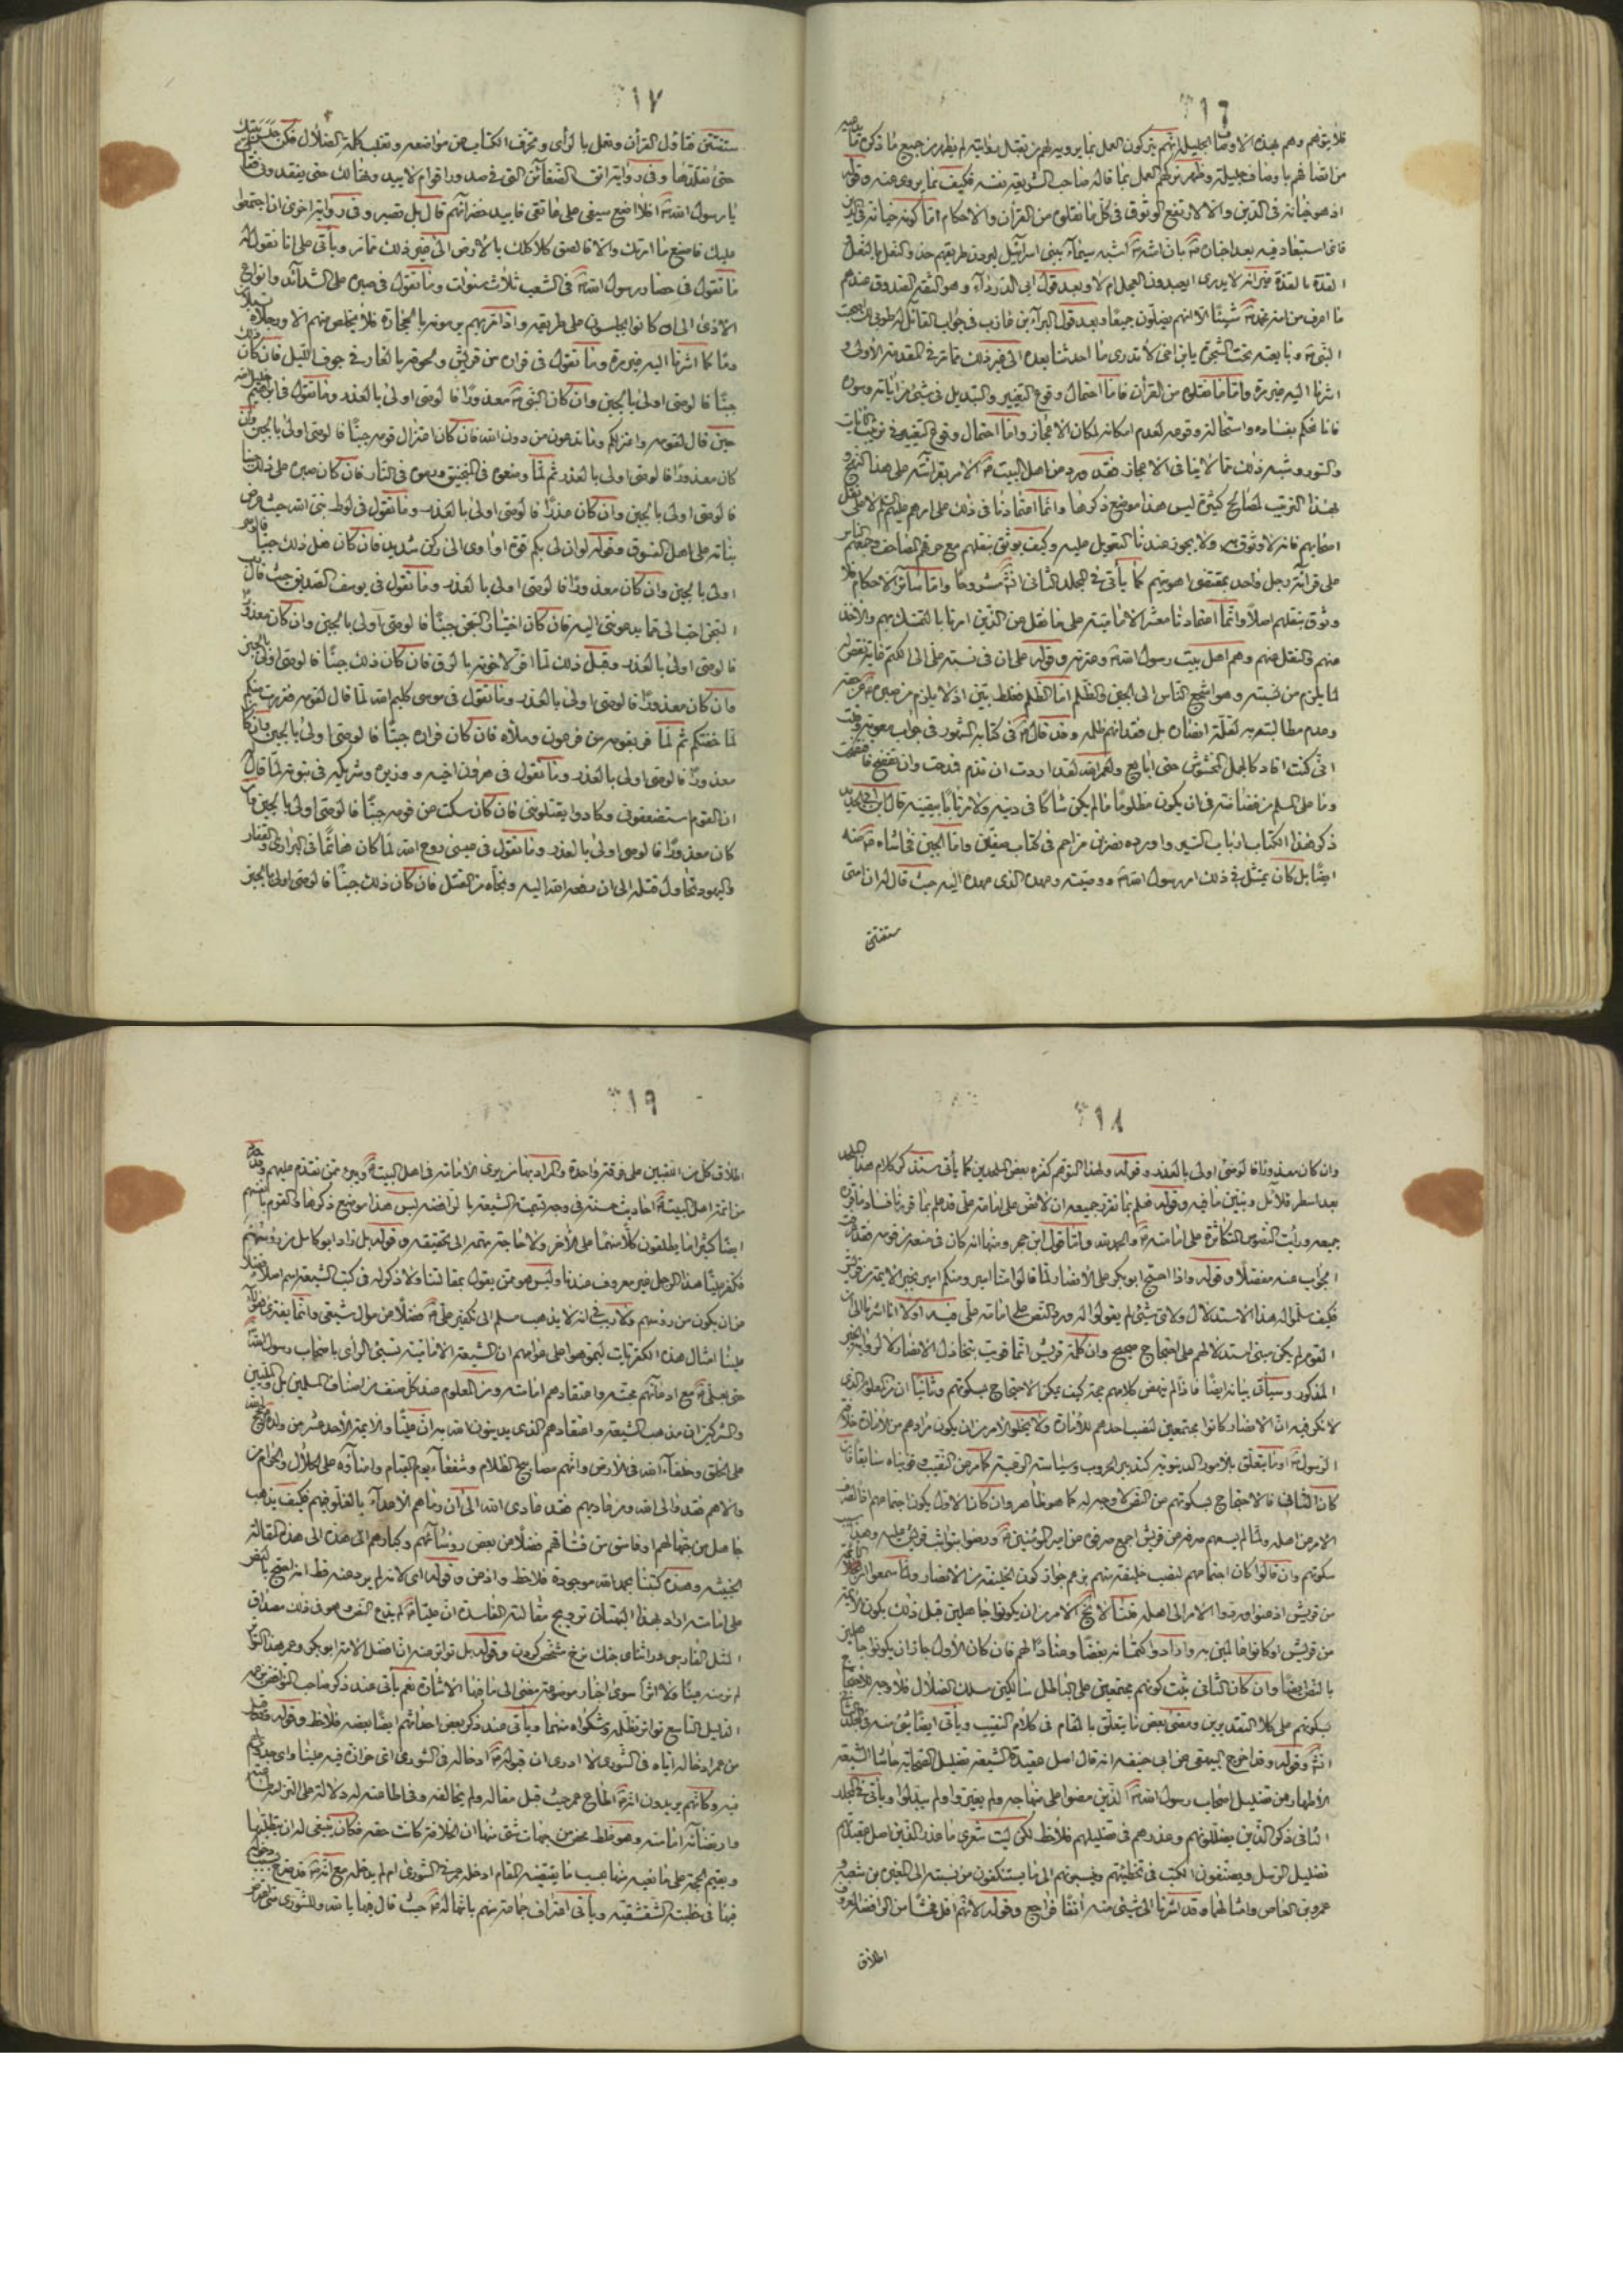 ١٦
فلا يتوهم وهم بهذه الاوصاف الجليلة انهم يتركون العمل بما يرويه لهم من يقبل
من اتصافهم باوصاف جليلة وظهر تركهم العمل بما قاله صاحب الشريعة نفسه فكيف بما يروى عنه وقوله
اذ هو خيانة في الدين والا لارتفع الوثوق في كل ما نقلوه من القرآن والاحكام اما كونه خيانة في الدين
فاى استبعاد فيه بعد اخباره بان امته اشبه سيماء ببنى اسرائيل ليرون طريقهم حذو النعل بالنعل
القذة بالقذة غير انه لا يدرى ايعبدون العجل ام لا وبعد قول ابى الدرداء وهو الثقة الصدوق عندهم
ما اعرف من امة محمد شيئا الا انهم يصلون جميعا وبعد قول البراء بن عازب في جواب القائل له طوبى لك صحبت
النبى وبايعته تحت الشجرة يابن اخى لا تدرى ما احدثنا بعده الى غير ذلك مما مر في المقدمة الاولى و
اشرنا اليه غير مرة واما ما نقلوه من القرآن فاما احتمال وقوع التغيير والتبديل في شئ من اياته وسوره
فانا نحكم بفساده واستحالة وقوعه لعدم امكانه لمكان الاعجاز واما احتمال وقوع التغيير في ترتيب الايات
والسور وشبه ذلك مما لا ينافى الاعجاز فقد ورد من اهل البيت الامر بقرائته على هذا النهج و
بهذا الترتيب لمصالح كثيرة ليس هذا موضع ذكرها وانما اعتمادنا في ذلك على امرهم عليهم السلام لا على نقل
اصحابهم فانه لا وثوق به ولا يجوز عندنا التعويل عليه وكيف يوثق بنقلهم مع حرقهم المصاحف وجمعهم الناس
على قرائة رجل واحد بمقتضى اهويتهم كما يأتى في المجلد الثانى انش مشروحا واما سائر الاحكام فلا
وثوق بنقلهم اصلا وانما اعتمادنا معشر الامامية على ما نقل من الذين امرنا بالتمسك بهم والاخذ
منهم والنقل عنهم وهم اهل بيت رسول الله وعترته وقوله على ان في نسبة على الى الكتم غاية نقص له
لما يلزم من نسبته وهو اشجع الناس الى الجبن والظلم اما الظلم فغلط بين اذ لا يلزم من صبره عن حقه
وعدم مطالبته به لقلة انصاره بل فقدانهم ظلمه وقد قال في كتابه المشهور في جواب معوية وقلت
انى كنت اقاد كالجمل المخشوش حتى ابايع ولعمر الله لقد اردت ان تذم فمدحت وان تفضح فافتضحت
وما على المسلم من غضاضة في ان يكون مظلوما ما لم يكن شاكا في دينه ولا مرتابا بيقينه قال ابن ابى الحديد
ذكر هذا الكتاب ارباب السير واورده نصر بن مزاحم في كتاب صفين واما الجبن فحاشاه منه
ايضا بل كان يمتثل في ذلك امر رسول الله ووصيته وعهده الذى عهده اليه حيث قال له ان امتى
ستفتتن
١٧
ستفتتن فتاول القرآن وتعمل بالرأى وتحرف الكتاب عن مواضعه وتغلب كلمة الضلال فكن جليس بيتك
حتى تقلدها وفى رواية اتق الضغائن التى في صدور اقوام
يا رسول الله افلا اضع سيفى على عاتقى فابيد خضرائهم قال بل تصبر وفى رواية اخرى ان اجتمعوا
عليك فاصنع ما امرتك والا فالصق كلاكلك بالارض الى غير ذلك مما مر ويأتى على انا نقول له
ما تقول في حصار رسول الله في الشعب ثلاث سنوات وما تقول في صبره على الشدائد وانواع
الاذى الى ان كانوا يجلسون على طريقه واذا مر بهم يرمونه بالحجارة فلا يخلص منهم الا ورجلاه تسيلان
دما كما اشرنا اليه غير مرة وما تقول في فراره من قريش ولحوقه بالغار في جوف الليل فان كان ذلك
جبنا فالوصى اولى بالجبن وان كان النبى معذورا فالوصى اولى بالعذر وما تقول في ابراهيم خليل الله
حين قال لقومه واعتزلكم وما تدعون من دون الله فان كان اعتزال قومه جبنا فالوصى اولى بالجبن وان
كان معذورا فالوصى اولى بالعذر ثم لما وضعوه في المنجنيق ورموه في النار فان كان صبره على ذلك جبنا
فالوصى اولى بالجبن وان كان عذرا فالوصى اولى بالعذر وما تقول في لوط نبى الله حيث عرض
بناته على اهل الفسوق وقوله لو ان لى بكم قوة او اوى الى ركن شديد فان كان فعل ذلك جبنا فالوصى
اولى بالجبن وان كان معذورا فالوصى اولى بالعذر وما تقول في يوسف الصديق حيث قال رب
السجن احب الى مما يدعوننى اليه فان كان اختيار السجن جبنا فالوصى اولى بالجبن وان كان معذورا
فالوصى اولى بالعذر وقبل ذلك لما اقر لاخوته بالرق فان كان ذلك جبنا فالوصى اولى بالجبن
وان كان معذورا فالوصى اولى بالعذر وما تقول في موسى كليم الله لما قال لقومه ففررت منكم
لما خفتكم ثم لما فر بقومه من فرعون وملأه فان كان فراره جبنا فالوصى اولى بالجبن وان كان
معذورا فالوصى اولى بالعذر وما تقول في هارون اخيه ووزيره وشريكه في نبوته لما قال
ان القوم استضعفونى وكادوا يقتلوننى فان كان سكت عن قومه جبنا فالوصى اولى بالجبن وان
كان معذورا فالوصى اولى بالعذر وما تقول في عيسى روح الله لما كان هائما في البرارى والقفار
واليهود تحاول قتله الى ان رفعه الله اليه ونجاه من القتل فان كان ذلك جبنا فالوصى اولى بالجبن
١٨
وان كان معذورا فالوصى اولى بالعذر وقوله ولهذا التوهم كفره بعض الملحدين كما يأتى ستذكر كلام هذا الملحد
بعد اسطر قلائل ونبين ما فيه وقوله فعلم بما تقرر جميعه ان لا نص على امامة على قد علم بما قررنا فساد ما قرره
جميعه ورأيت النصوص المتكاثرة على امامته والحمد لله واما قول ابن حجر ومنها انه كان في منعة من قومه فقد عرفت
الجواب عنه مفصلا وقوله واذا احتج ابو بكر على الانصار لما قالوا منا امير ومنكم امير بخبر الائمة من قريش
فكيف سلموا له هذا الاستدلال ولاى شئ لم يقولوا له ورد النص على امامة على فيه اولا انا اشرنا الى ان
القوم لم يكن مبنى استدلالهم على احتجاج صحيح وان كلمة قريش انما قويت بتخاذل الانصار لا لرواية الخبر
المذكور وسيأتى بيانه ايضا فاذا لم ينهض كلامهم بحجة كيف يمكن الاحتجاج بسكوتهم وثانيا ان من المعلوم الذى
لا نكر فيه ان الانصار كانوا مجتمعين لنصب احدهم للامارة ولا يخلو الامر من ان يكون مرادهم من الامارة خلافة
الرسول او ما يتعلق بالامور الدنيوية كتدبير الحروب وسياسة الرعية كما مر عن النقيب وقويناه سابقا فان
كان الثانى فالاحتجاج بسكوتهم عن النص لا وجه له كما هو ظاهر وان كان الاول يكون اجتماعهم
الامر من اهله ولما لم يسعهم صرفه من قريش اجمع صرفوه من امير المؤمنين
سكوتهم وان قالوا كان اجتماعهم لنصب خليفة منهم بزعم جواز كون الخليفة من الانصار ولما سمعوا ان الائمة
من قريش اذعنوا وردوا الامر الى اهله قلنا لا يخ الامر من ان يكونوا جاهلين قبل ذلك بكون الائمة
من قريش او كانوا عالمين به وارادوا كتمانه بغضا وعنادا لهم فان كان الاول جاز ان يكونوا جاهلين
بالنص ايضا وان كان الثانى ثبت كونهم مجتمعين على الباطل سالكين مسلك الضلال فلا وجه للاحتجاج
بسكوتهم على كلا التقديرين ومضى بعض ما يتعلق بالمقام في كلام النقيب ويأتى ايضا شئ منه في المجلد الثانى
انش وقوله وقد اخرج البيهقى عن ابى حنيفة انه قال اصل عقيدة الشيعة تضليل الصحابة حاشا الشيعة
الاطهار من تضليل اصحاب رسول الله الذين مضوا على منهاجه ولم يغيروا ولم يبدلوا ويأتى في المجلد
الثانى ذكر الذين يضللونهم وعذرهم في تضليلهم فلاحظ لكن ليت شعرى ما عذر الذين اصل عقيدتهم
تضليل الرسل ويصنفون الكتب في تخطئتهم ونسبتهم الى ما يستنكفون من نسبته الى المغيرة بن شعبة و
عمرو بن العاص وامثالهما وقد اشرنا الى شئ منه انفا فراجع وقوله لانهم اقل فحشا من الرافضة
اطلاق
١٩
اطلاق كل من اللقبين على فرقة واحدة والمراد بهما من يرى الامامة في اهل البيت ويبرء ممن تقدم عليهم وقد ورد
من ائمة اهل البيت احاديث حسنة في وجه تسمية الشيعة بالرافضة ليس هذا موضع ذكرها والقوم بانفسهم
ايضا كثيرا ما يطلقون كلا منهما على الآخر ولا حاجة مهمة الى تحقيقه وقوله بل زاد ابو كامل من رؤسهم
فكفر عليا هذا الرجل غير معروف عندنا وليس هو ممن يقول بمقالتنا ولا ذكر له في كتب الشيعة اسم اصلا فضلا
من ان يكون من رؤسهم ولا ريب في انه لا يذهب مسلم الى تكفير على فضلا من موال شيعى وانما يفترى هؤلاء
علينا امثال هذه الكفريات ليموهوا على عوامهم ان الشيعة الامامية تسئ الرأى باصحاب رسول الله
حتى بعلى مع ادعائهم محبته واعتقادهم امامته ومن المعلوم عند كل صنف من اصناف المسلمين بل والمليين
والمشركين ان مذهب الشيعة واعتقادهم الذى يدينون الله به ان عليا والائمة الاحد عشر من ولده حجج الله
على الخلق وخلفاء الله في الارض وانهم مصابيح الظلام وشفعاء يوم القيام وامناؤه على الحلال والحرام من
والاهم فقد والى الله ومن عاداهم فقد عادى الله الى ان رماهم الاعداء بالغلو فيهم فكيف يذهب
جاهل من جهالهم او فاسق من فساقهم فضلا من بعض رؤسائهم وكبارهم الى هذه المقالة
الخبيثة وهذه كتبنا بحمد الله موجودة فلاحظ واذعن وقوله اى لانه لم يرد عنه قط انه احتج بالنص
على امامته اراد بهذا البهتان ترويج مقالته الفاسدة ان عليا لم يدع النص وهو في ذلك مصداق
المثل الفارسى وقوله بل تواتر عنه ان افضل الامة ابو بكر وعمر هذا التواتر
لم نر منه عينا ولا اثرا سوى اخبار موضوعة مضى الى ما فيها الاشارة نعم يأتى عند ذكر صاحب النواقض
الدليل التاسع تواتر تظلمه وشكواه منهما ويأتى عند ذكر بعض احداثهم ايضا بعضه فلاحظ وقوله فقبل
من عمر ادخاله اياه في الشورى لا ادرى ان قبوله ادخاله في الشورى اى حزازة فيه علينا واى جدوى لهم
فيه وكانهم يريدون انه اطاع عمر حيث قبل مقاله ولم يخالفه وفى اطاعته له دلالة على
وارتضائه امامته وهو غلط محض من جهات شتى منها ان الخلافة كانت حقه فكان ينبغى له ان يطلبها
ويقيم الحجة على ما نعيه منها حسب ما يقتضيه المقام ادخله عمر في الشورى ام لم يدخله مع انه قد صرح
فيها في خطبته الشقشقية ويأتى اعتراف جماعة منهم بانها له حيث قال فيها يا لله وللشورى متى اعترض